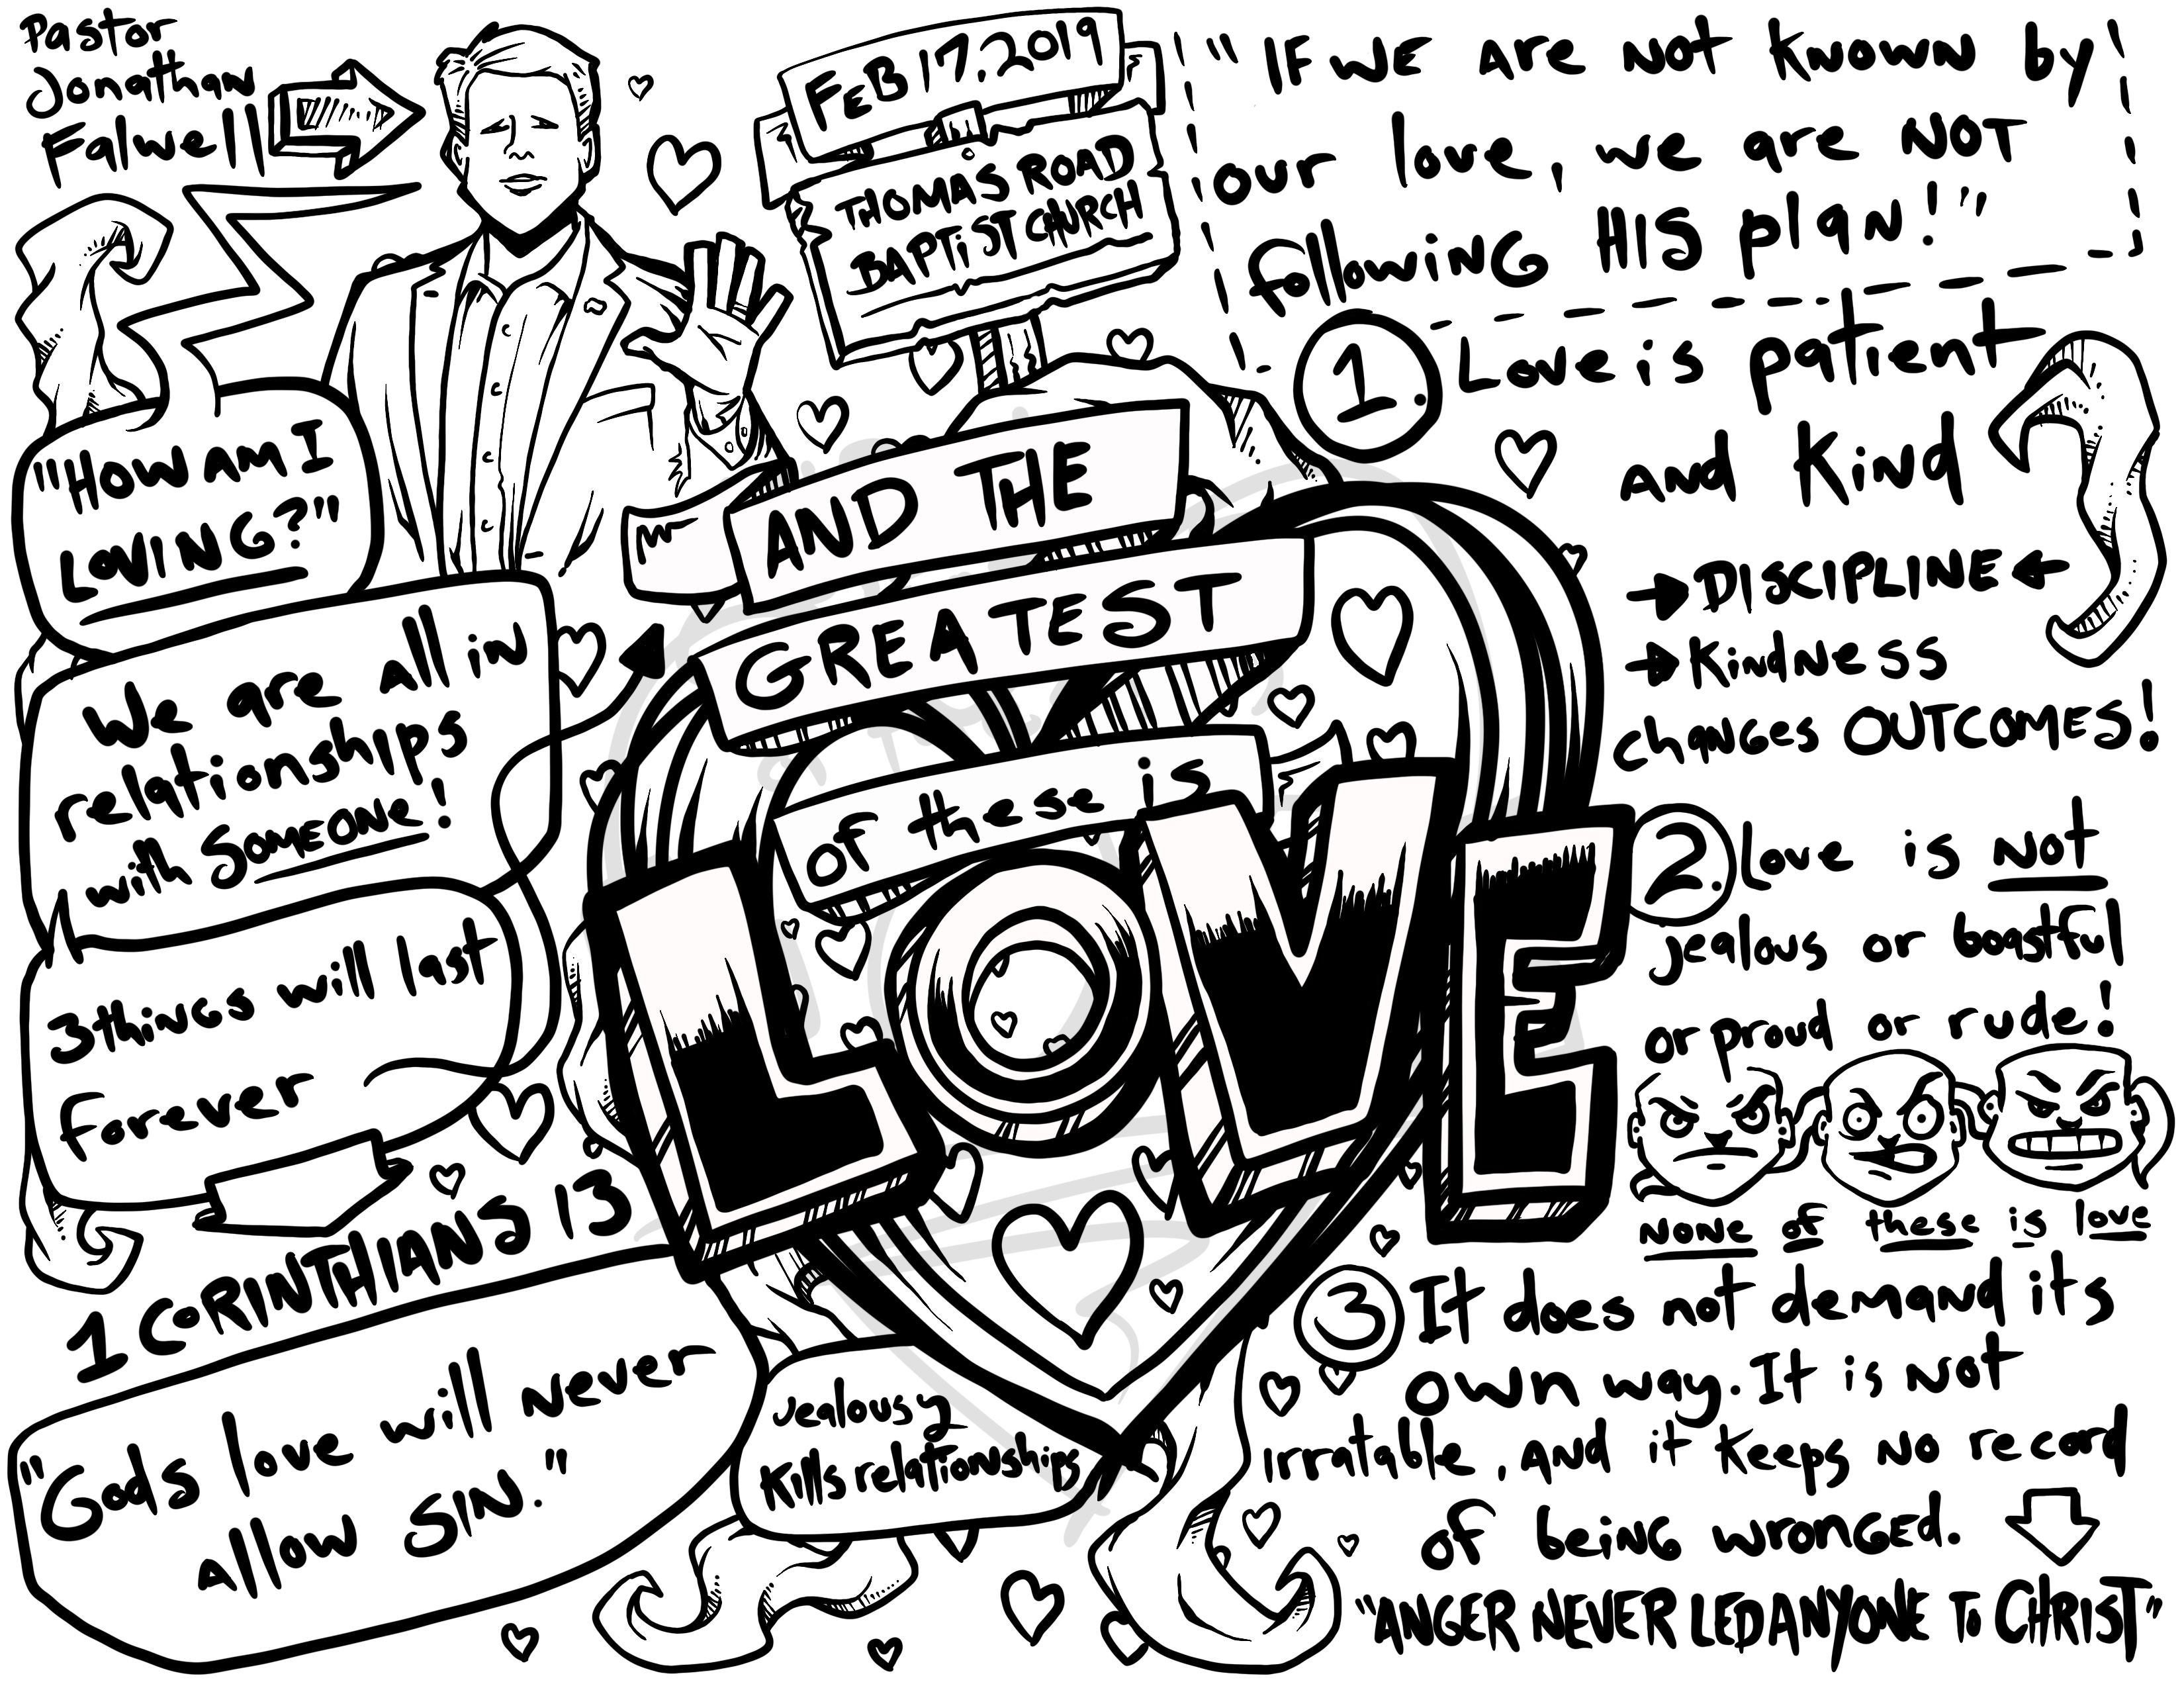 Pastor
Jonathan
Falwell
FEB 17, 2019
THOMAS ROAD
BAPTIST CHURCH
"IF WE ARE NOT KNOWN by
our love, we are NOT
following HIS plan!"
"HOW AM I
LOVING?"
We are All in
relationships
with SOMEONE!
3 things will last
forever
1 CORINTHIANS 13
"Gods love will never
allow SIN."
AND THE
GREATEST
OF these is
LOVE
Jealousy
Kills relationships
1. Love is patient
AND Kind
→ DISCIPLINE ←
→ Kindness
changes OUTCOMES!
2. Love is NOT
jealous or boastful
or proud or rude!
NONE of these is love
3 It does not demand its
own way. It is Not
irratable, And it keeps NO record
of being wronged.
"ANGER NEVER LED ANYONE To CHRIST"